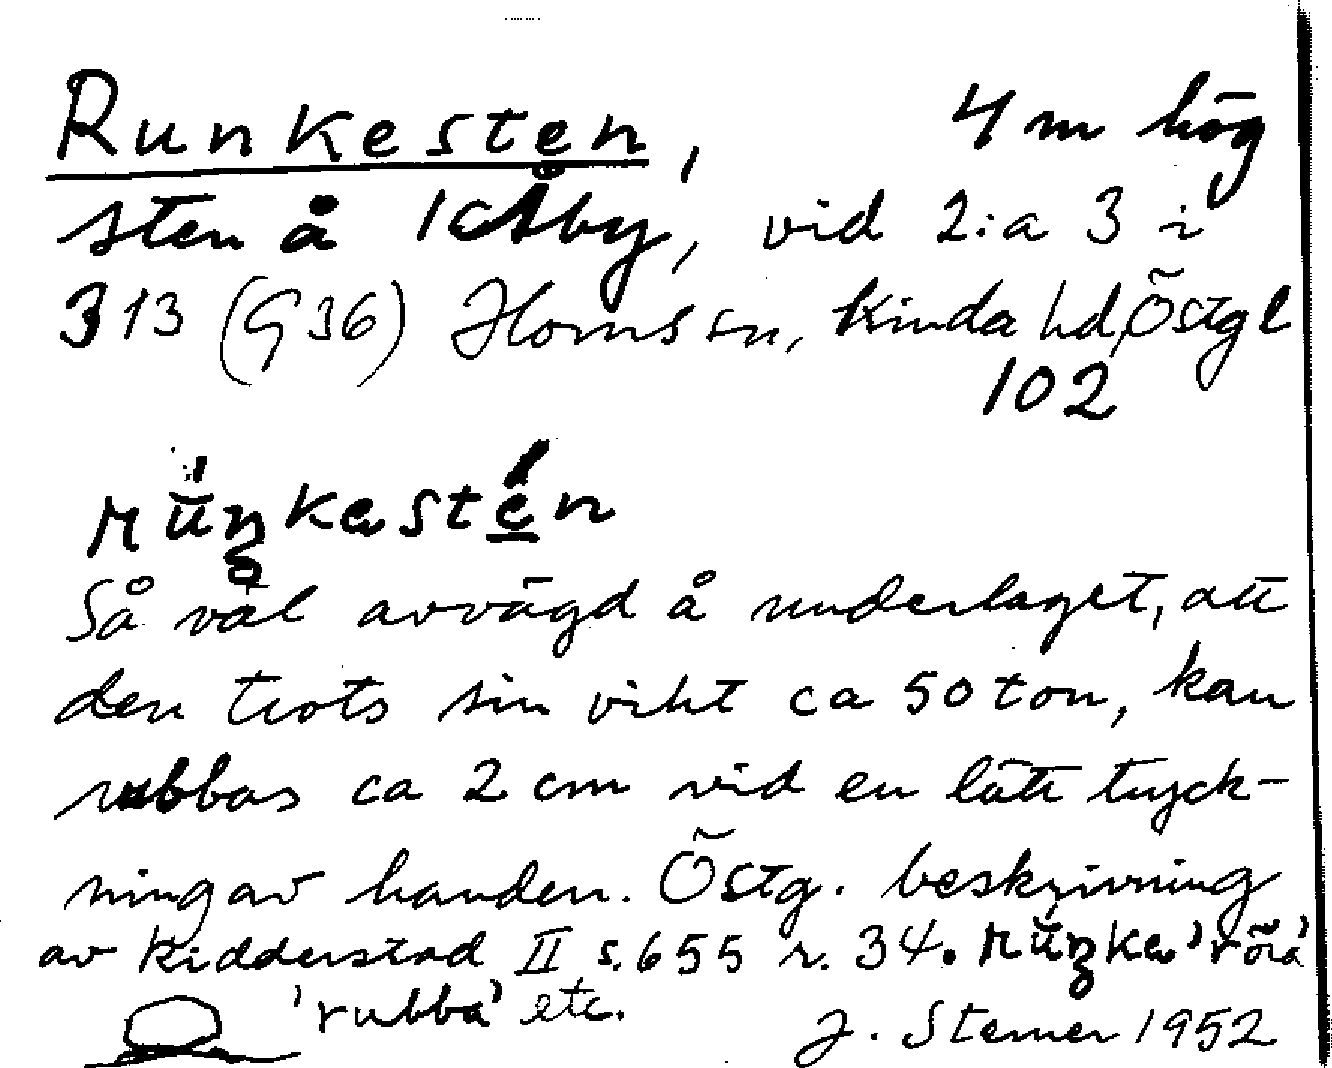 Runkesten, 4 m hög
sten å Kåby, vid 2:a 3 i
313 (G36) Horns sn, Kinda hd, Östgl
102
Så väl avvägd å underlaget, att
den trots sin vikt ca 50 ton, kan
rubbas ca 2 cm vid en lätt tryck-
ning av handen. Östg. beskrivning
av Ridderstad II s. 655 r. 34. 'röra'
'rubba' etc. J. Sterner 1952